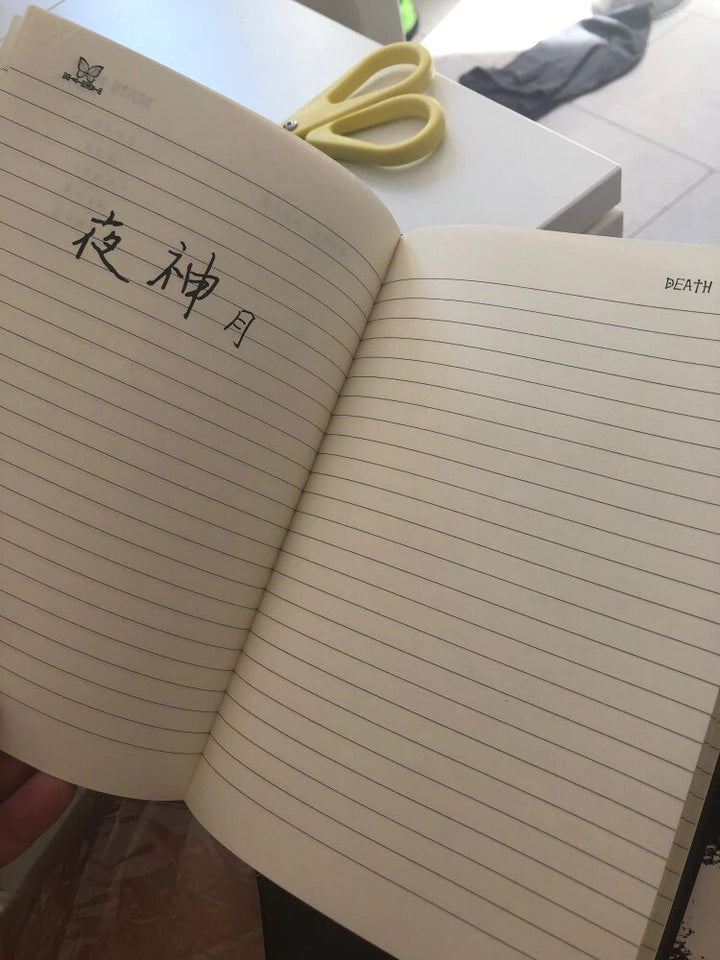 夜神月
DEATH